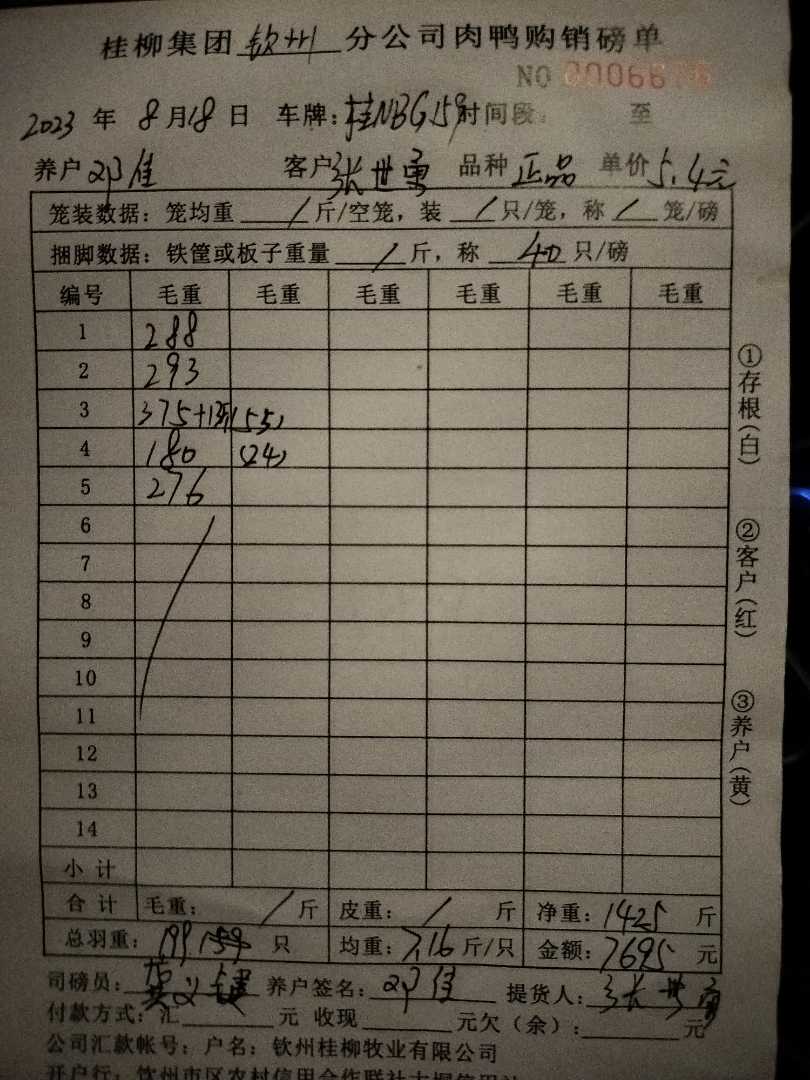 桂柳集团 钦州 分公司肉鸭购销磅单
NO
2023 年 8月18日 车牌:桂NBG159 时间段: 至
养户 邓佳 客户 张世勇 品种 正品 单价 5.4元
笼装数据:笼均重 / 斤/空笼,装 / 只/笼,称 / 笼/磅
捆脚数据:铁筐或板子重量 / 斤,称 40 只/磅
编号 毛重 毛重 毛重 毛重 毛重 毛重
1 288
2 293
3 375+13 (55)
4 180 (24)
5 276
6
7
8
9
10
11
12
13
14
小计
合计 毛重: / 斤 皮重: / 斤 净重:1425 斤
总羽重: 199 只 均重:7.16 斤/只 金额:7695 元
司磅员: 养户签名:邓佳 提货人:张世勇
付款方式:汇 元 收现 元欠(余): 元
公司汇款帐号:户名:钦州桂柳牧业有限公司
开户行:钦州市区农村信用合作联社
①存根(白)
②客户(红)
③养户(黄)